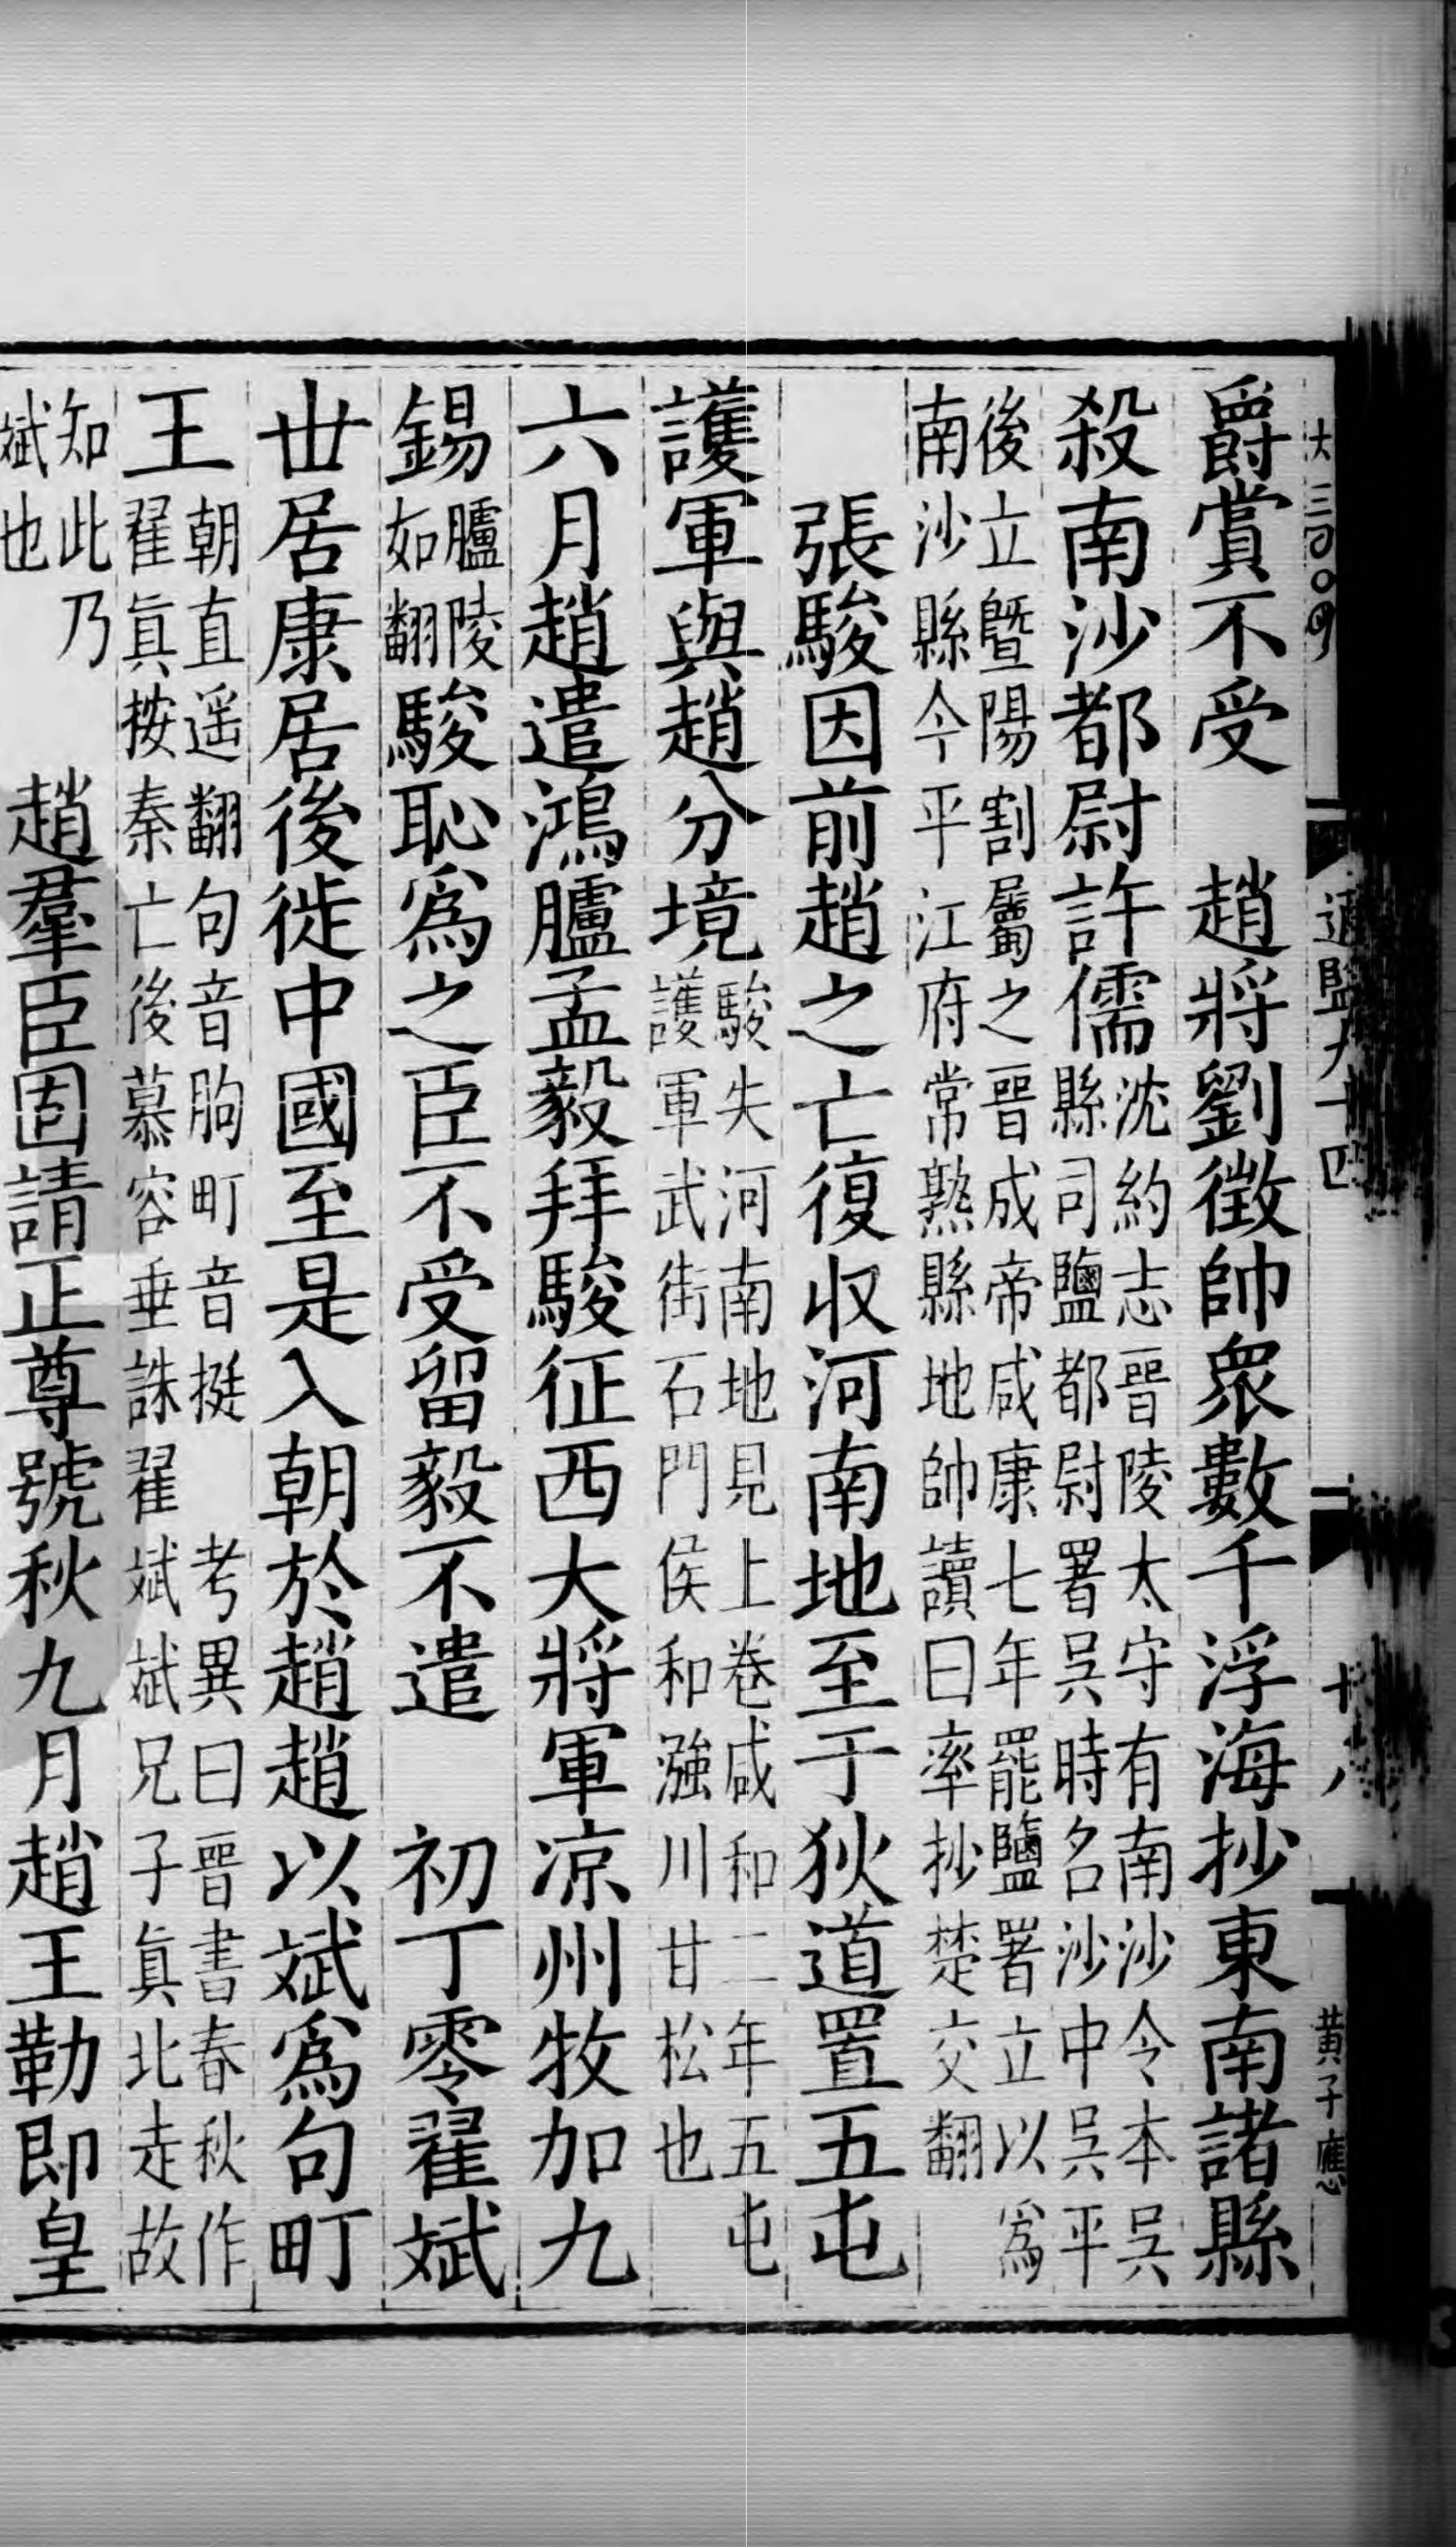 通鑑九十四 十八 黃子應
爵賞不受 趙將劉徵帥衆數千浮海抄東南諸縣
殺南沙都尉許儒
沈約志晉陵太守有南沙令本吳
縣司鹽都尉署吳時名沙中吳平
後立暨陽割屬之晉成帝咸康七年罷鹽署立以爲
南沙縣今平江府常熟縣地帥讀曰率抄楚交翻
張駿因前趙之亡復収河南地至于狄道置五屯
護軍與趙分境
駿失河南地見上卷咸和二年五屯
護軍武街石門侯和漒川甘松也
六月趙遣鴻臚孟毅拜駿征西大將軍凉州牧加九
錫
臚陵
如翻
駿恥爲之臣不受留毅不遣 初丁零翟斌
丗居康居後徙中國至是入朝於趙趙以斌爲句町
王
朝直遥翻句音朐町音挺 考異曰晉書春秋作
翟眞按秦亡後慕容垂誅翟斌斌兄子眞北走故
知此乃
斌也
趙羣臣固請正尊號秋九月趙王勒即皇